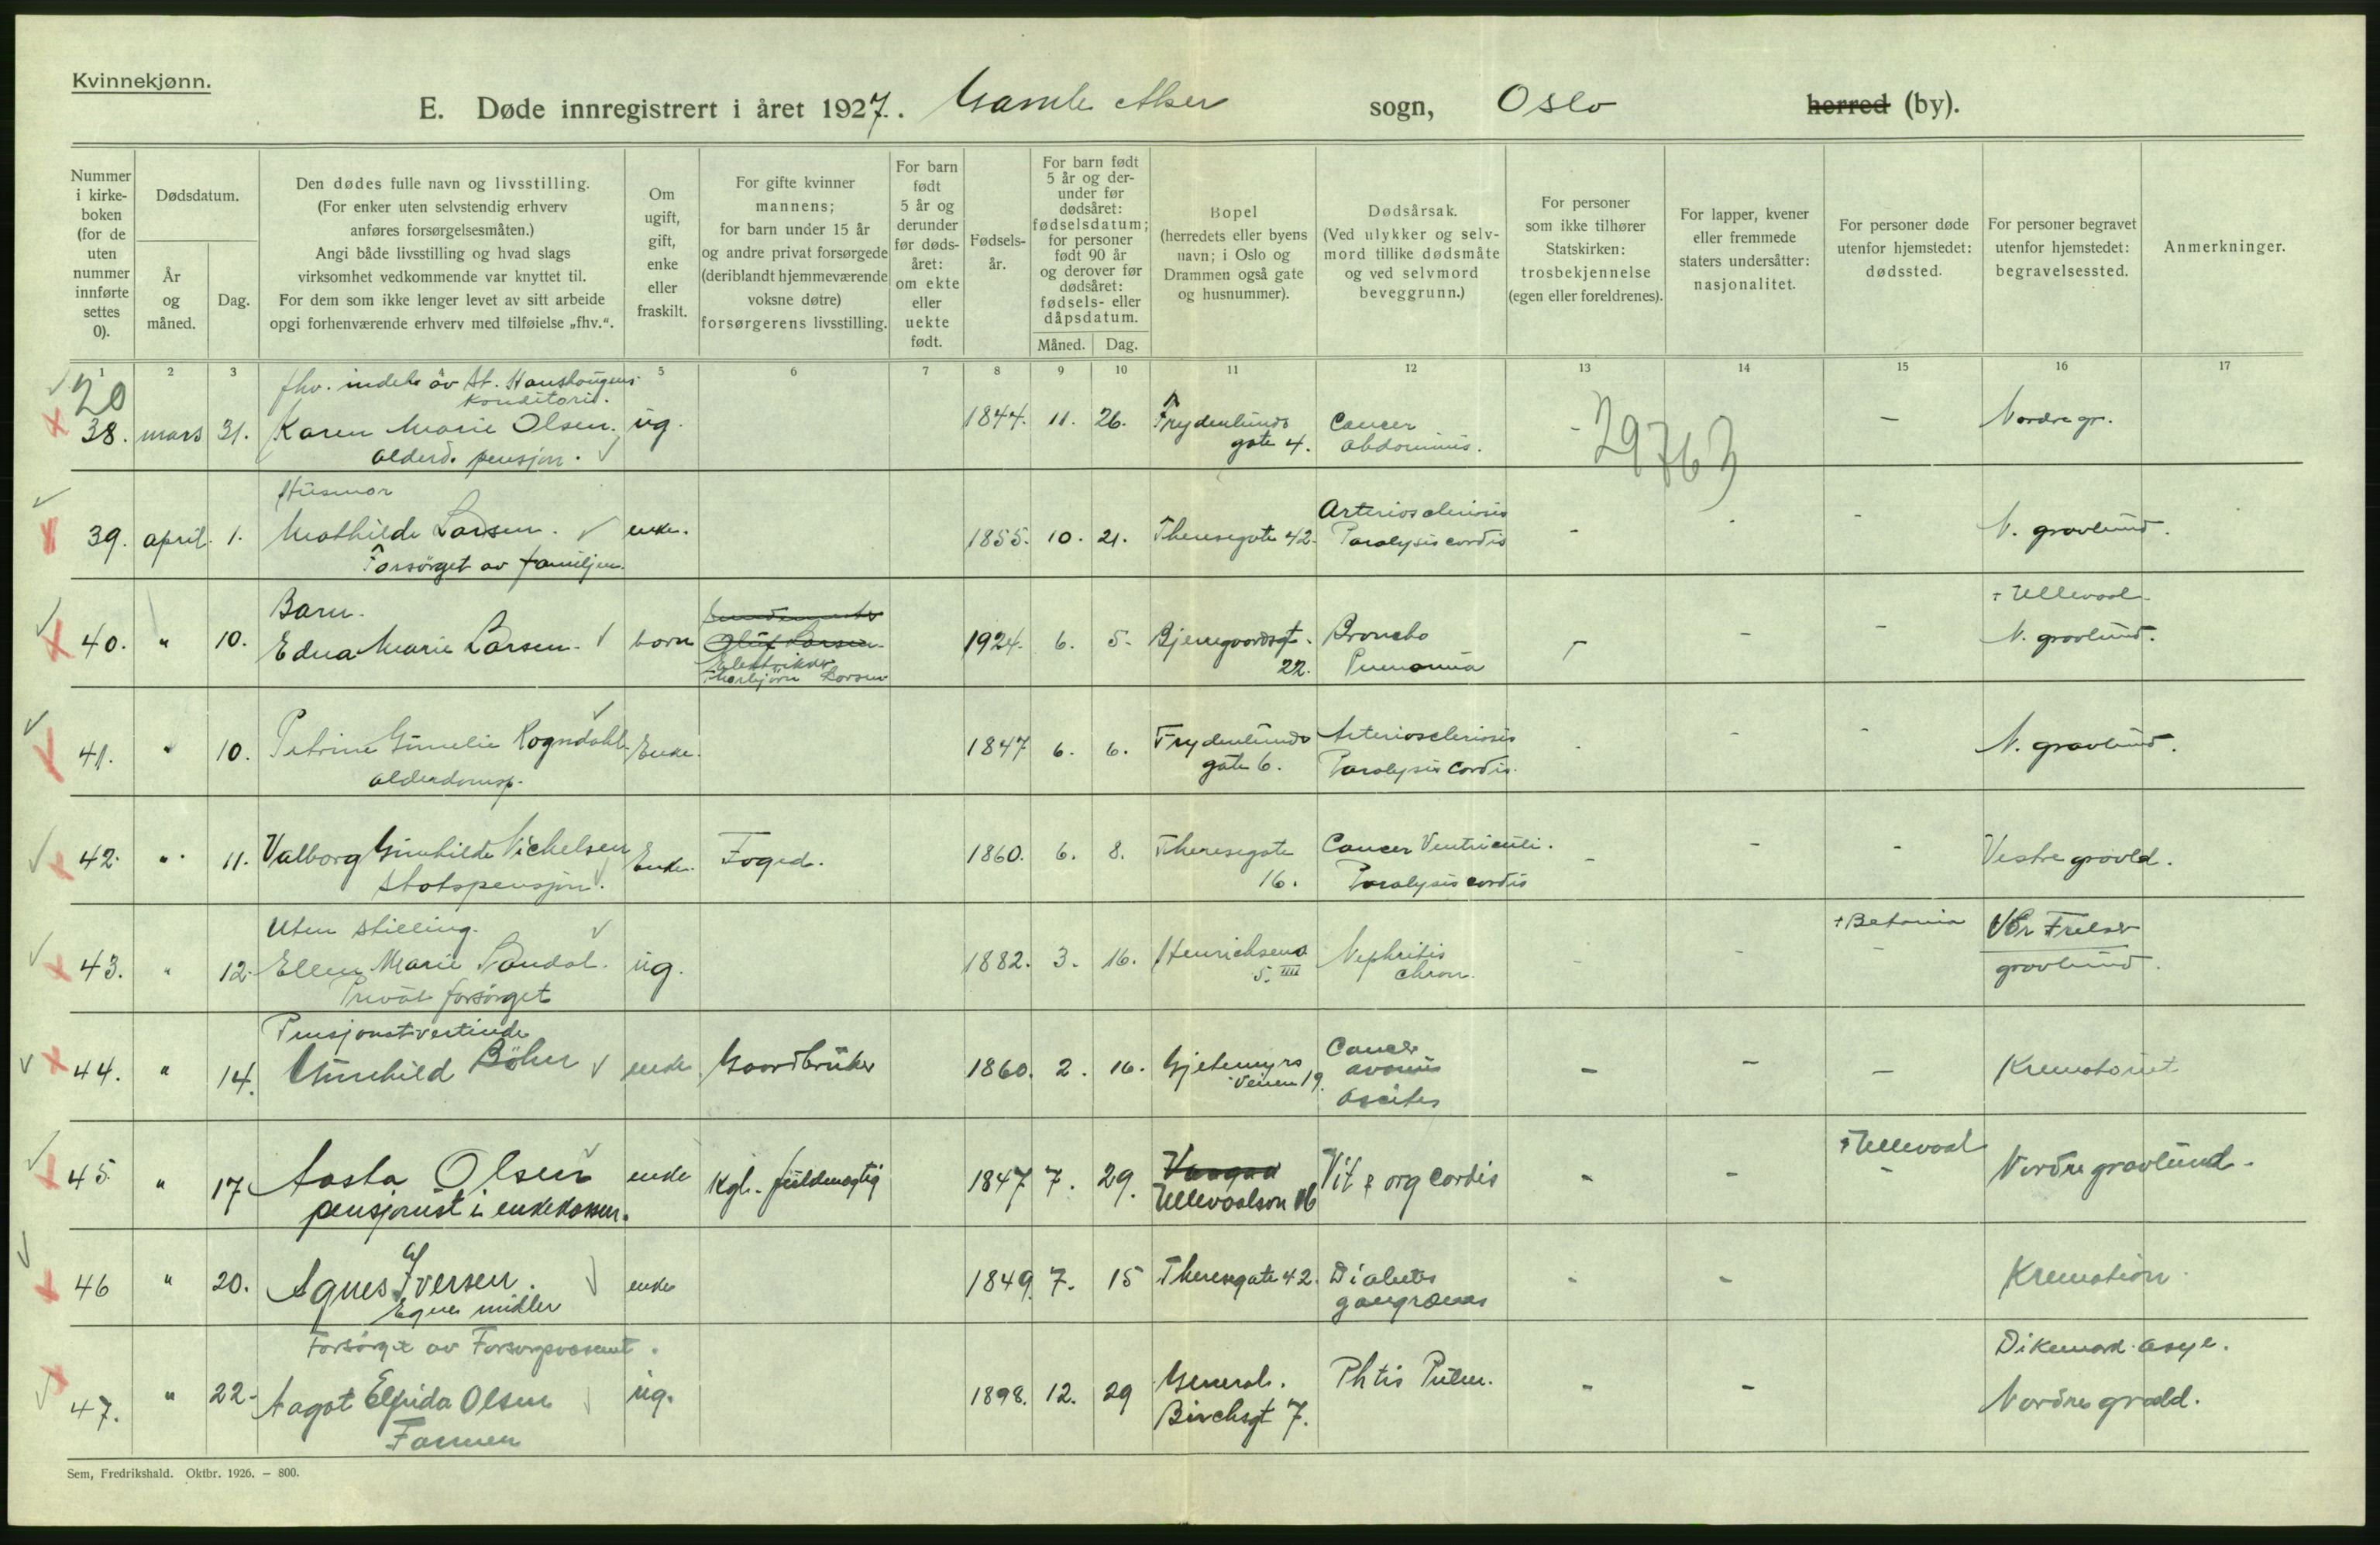 Kvinnekjønn.
E. Døde innregistrert i året 1927. Gamle Aker sogn, Oslo herred (by).
Nummer i kirkeboken (for de uten nummer innførte settes 0).
Dødsdatum.
År og måned.
Dag.
Den dødes fulle navn og livsstilling.
(For enker uten selvstendig erhverv
anføres forsørgelsesmåten.)
Angi både livsstilling og hvad slags
virksomhet vedkommende var knyttet til.
For dem som ikke lenger levet av sitt arbeide
opgi forhenværende erhverv med tilføielse „fhv.“.
Om ugift, gift, enke eller fraskilt.
For gifte kvinner
mannens;
for barn under 15 år
og andre privat forsørgede
(deriblandt hjemmeværende
voksne døtre)
forsørgerens livsstilling.
For barn født 5 år og derunder før dødsåret: om ekte eller uekte født.
Fødselsår.
For barn født
5 år og derunder før
dødsåret:
fødselsdatum;
for personer
født 90 år
og derover før
dødsåret:
fødsels- eller
dåpsdatum.
Måned. Dag.
Bopel
(herredets eller byens
navn; i Oslo og
Drammen også gate
og husnummer).
Dødsårsak.
(Ved ulykker og selvmord tillike dødsmåte
og ved selvmord
beveggrunn.)
For personer
som ikke tilhører
Statskirken:
trosbekjennelse
(egen eller foreldrenes).
For lapper, kvener
eller fremmede
staters undersåtter:
nasjonalitet.
For personer døde
utenfor hjemstedet:
dødssted.
For personer begravet
utenfor hjemstedet:
begravelsessted.
Anmerkninger.
1 2 3 5 6 7 8 9 10 11 12 13 14 15 16 17
20
fhv. indeh. av St. Hanshougens
Konditori.
38. mars 31. Karen Marie Olsen. ug. 1844. 11. 26. Frydenlunds gate 4. Cancer abdominis. - 29763 - Nordre gr.
alderd. pensjon.
Husmor
39. april. 1. Mathilde Larsen. enke. 1855. 10. 21. Theresegate 42. Arteriosclerosis Paralysis cordis - - - N. gravlund.
Forsørget av familjen.
Barn.
40. " 10. Edna Marie Larsen. barn Olaf Larsen Elektriker Thorbjörn Larsen 1924. 6. 5. Bjerregaardsgt. 22. Broncho Pneumonia - - - + Ullevaal. N. gravlund.
41. " 10. Petrine Gunelie Rogndahl. Enke. 1847 6. 6. Frydenlunds gate 6. Arteriosclerosis Paralysis Cordis. - - - N. gravlund.
alderdomsp.
42. " 11. Valborg Gunhilde Michelsen Enke. Foged. 1860. 6. 8. Theresegate 16. Cancer Ventriculi. Paralysis cordis - - - Vestre gravld.
statspensjon.
Uten stilling.
43. " 12. Ellen Marie Sandal. ug. 1882. 3. 16. Henrichsens 5. IIII Nephritis chron. - - + Betania - Vår Frelser gravlund.
Privat forsörget
Pensjonatvertinde
44. " 14. Gunhild Böhn enke Gaardbruker 1860. 2. 16. Gjetemyrs veien 19. Cancer ascites - - - Krematoriet
45. " 17 Aasta Olsen enke Kgl. fuldmægtig 1847 7. 29. Ullevaalsvn 16 Vit. org cordis - - + Ullevaal - Nordre gravlund.
pensjonist i enkekassen.
46 " 20. Agnes Iversen. enke 1849. 7. 15 Theresegate 42. Diabetes gangrænas - - Kremation
Egne midler
Forsörget av Forsorgsvæsenet.
47. " 22. Aagot Elfrida Olsen ug. 1898. 12. 29 General. Birchsgt 7. Phtis Pulm. - - Dikemark asyl. Nordre gravld.
Sem, Fredrikshald. Oktbr. 1926. – 800.